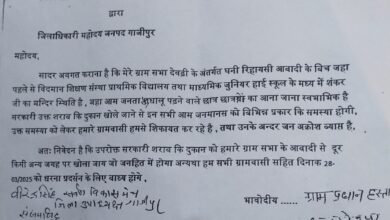 द्वारा
जिलाधिकारी महोदय जनपद गाजीपुर
महोदय,
सादर अवगत कराना है कि मेरे ग्राम सभा देवढ़ी के अंतर्गत घनी रिहायसी आवादी के बिच जहा
पहले से विदमान शिक्षण संस्था प्राथमिक विद्यालय तथा माध्यमिक जुनियर हाई स्कूल के मध्य में शंकर
जी का मन्दिर स्थिति है, अहा आम जनता श्रधालू पढने वाले छात्र छात्राओं का आना जाना स्वभाविक है
सरकारी उक्त शराव कि दुकान खोले जाने से इन सभी आम जनमानस को बिभिन्न प्रकार कि समस्या होगी,
उक्त समस्या को लेकर हमारे ग्रामवासी हमसे शिकायत कर रहे है, तथा उनके अन्दर जन अक्रोश व्याप्त है,
अतः निबेदन है कि उपरोक्त सरकारी शराव कि दुकान को हमारे ग्राम सभा के आवादी से दूर
किमी अन्य जगह पर खोला जाय जो जनहित में होगा अन्यथा हम सभी ग्रामवासी सहित दिनांक 28-
03/2025 को धरना प्रर्दसन के लिए वाध्य होगे,
विरेन्द्र सिंह
जिला उपाध्यक्ष गाजीपुर
भावोदीय
ग्राम प्रधान